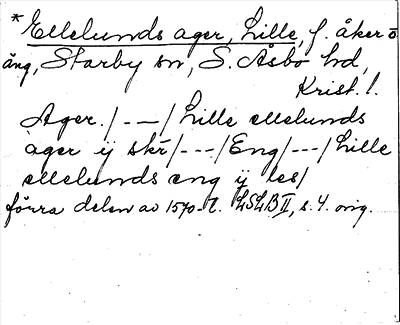 * Ellelunds ager, Lille, f. åker o
äng, Starby sn, S. Åsbo hd,
Krist. l.
Ager. /---/ Lille ellelunds
ager ij skr /---/ Eng /---/ Lille
ellelunds eng ij les /
förra delen av 1570-t. LSLB II, s. 4. orig.